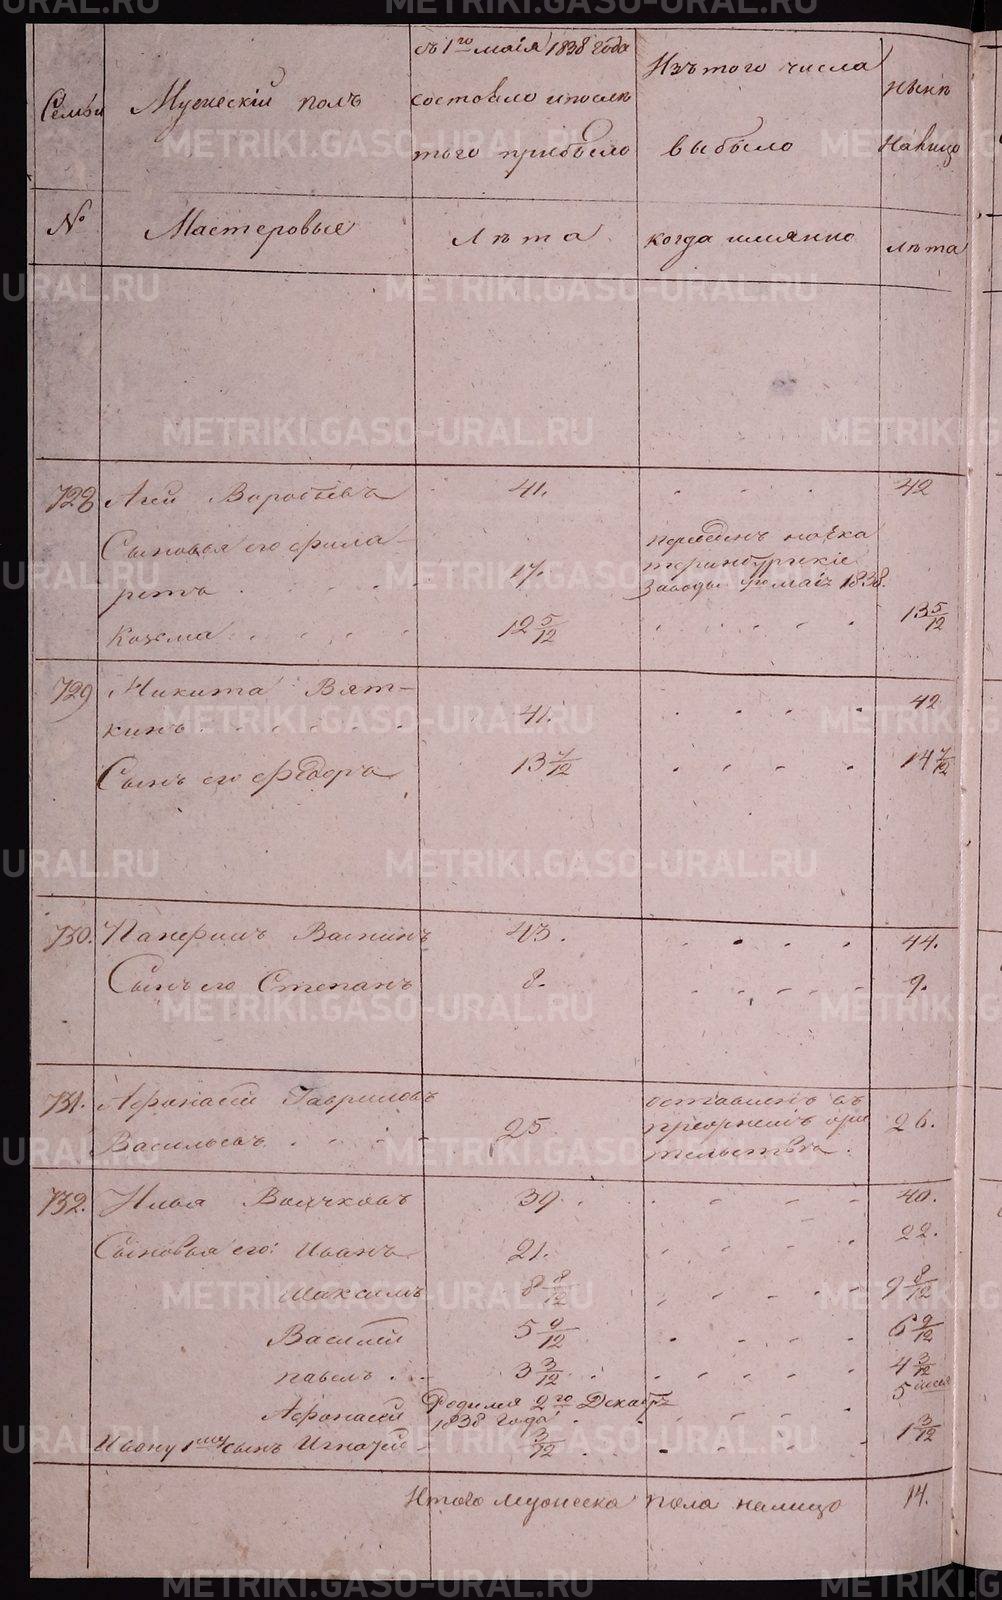 Семьи
Мужескій полъ
съ 1го маія 1838 года
состояло и послѣ
того прибыло
Изъ того числа
выбыло
нынѣ
Налицо
№
Мастеровые
Лѣта
когда имянно
лѣта
728 Агей Воробьевъ 41. 42
Сыновья его Фила-
ретъ 17. переведенъ на Ека
теринбургскіе
Заводы маія 1838.
Козма 12 5/12 13 5/12
729 Никита Вят-
кинъ 41. 42
Сынъ его Федоръ 13 7/12 14 7/12
730. Панфилъ 43. 44.
Сынъ его Степанъ 8. 9.
731. Афонасей Гавриловъ
Васильевъ 25 оставленъ въ
26.
732. Илья 39. 40.
Сыновья его: Иванъ 21. 22.
Максимъ 8 8/12 9 8/12
Василей 5 9/12 6 9/12
павелъ 3 3/12 4 3/12
Афонасей Родился 2го Декабря
1838 года 5 месяц
Ивану 1му сынъ Игнатей 3/12 1 3/12
Итого мужеска пола налицо 14.
METRIKI.GASO-URAL.RU